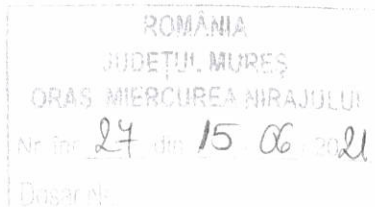 ROMÂNIA
JUDEŢUL MUREŞ
ORAŞ MIERCUREA NIRAJULUI
Nr. înr. 27 din 15 06 2021
Dosar nr.